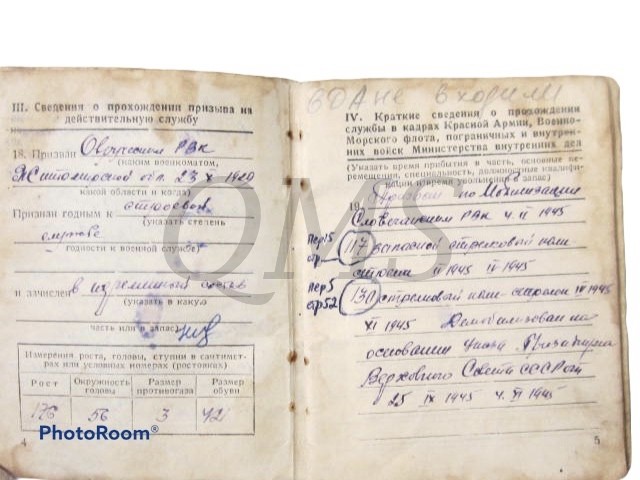 III. Сведения о прохождении призыва на
действительную службу
18. Призван Овручским РВК
(каким военкоматом,
Житомирской обл. 23 X 1920
какой области и когда)
Признан годным к строевой
(указать степень
службе
годности к военной службе)
и зачислен в
(указать в какую
часть или в запас)
Измерения роста, головы, ступни в сантимет-
рах или условных номерах (ростовках)
Рост Окружность головы Размер противогаза Размер обуви
176 56 3 42
4
PhotoRoom®
QMS
в ВДА не входили
IV. Краткие сведения о прохождении
службы в кадрах Красной Армии, Военно-
Морского флота, пограничных и внутрен-
них войск Министерства внутренних дел
(Указать время прибытия в часть, основные пе-
ремещения, специальность, должностные квалифи-
кации и время увольнения в запас)
19. Призван по Мобилизации
Словечанским РВК 4 II 1945
пер 15
стр
117 запасной стрелковый полк
II 1945 IV 1945
пер 5
стр 52
130 стрелковый полк IV 1945
XI 1945 Демобилизован на
основании Указа Президиума
Верховного Совета СССР от
25 IX 1945 4 XI 1945
5